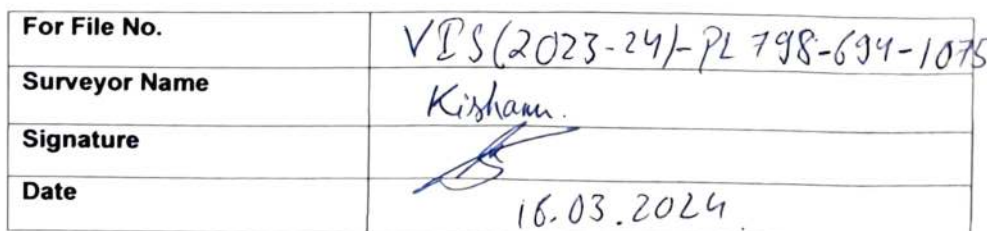 For File No. VIS(2023-24)-PL 798-694-1075
Surveyor Name Kishanu.
Signature
Date 16.03.2024